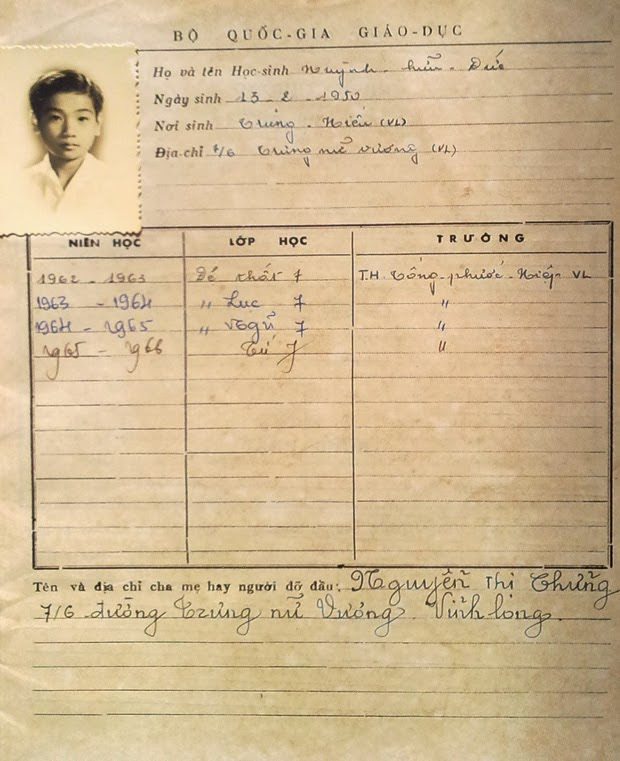 BỘ QUỐC-GIA GIÁO-DỤC
Họ và tên Học-sinh Huỳnh - hữu - Đức
Ngày sinh 15-2-1950
Nơi sinh Trung - Hiếu (VL)
Địa chỉ 7/6 Trưng nữ vương (VL)
NIÊN HỌC LỚP HỌC TRƯỜNG
1962 - 1963 Đệ thất 7 T.H. Tống-phước-Hiệp VL
1963 - 1964 " Lục 7 "
1964 - 1965 " Ngũ 7 "
1965 - 1966 Tứ 7 "
Tên và địa chỉ cha mẹ hay người đỡ đầu: Nguyễn Thị Chưởng
7/6 đường Trưng nữ Vương Vĩnh long.